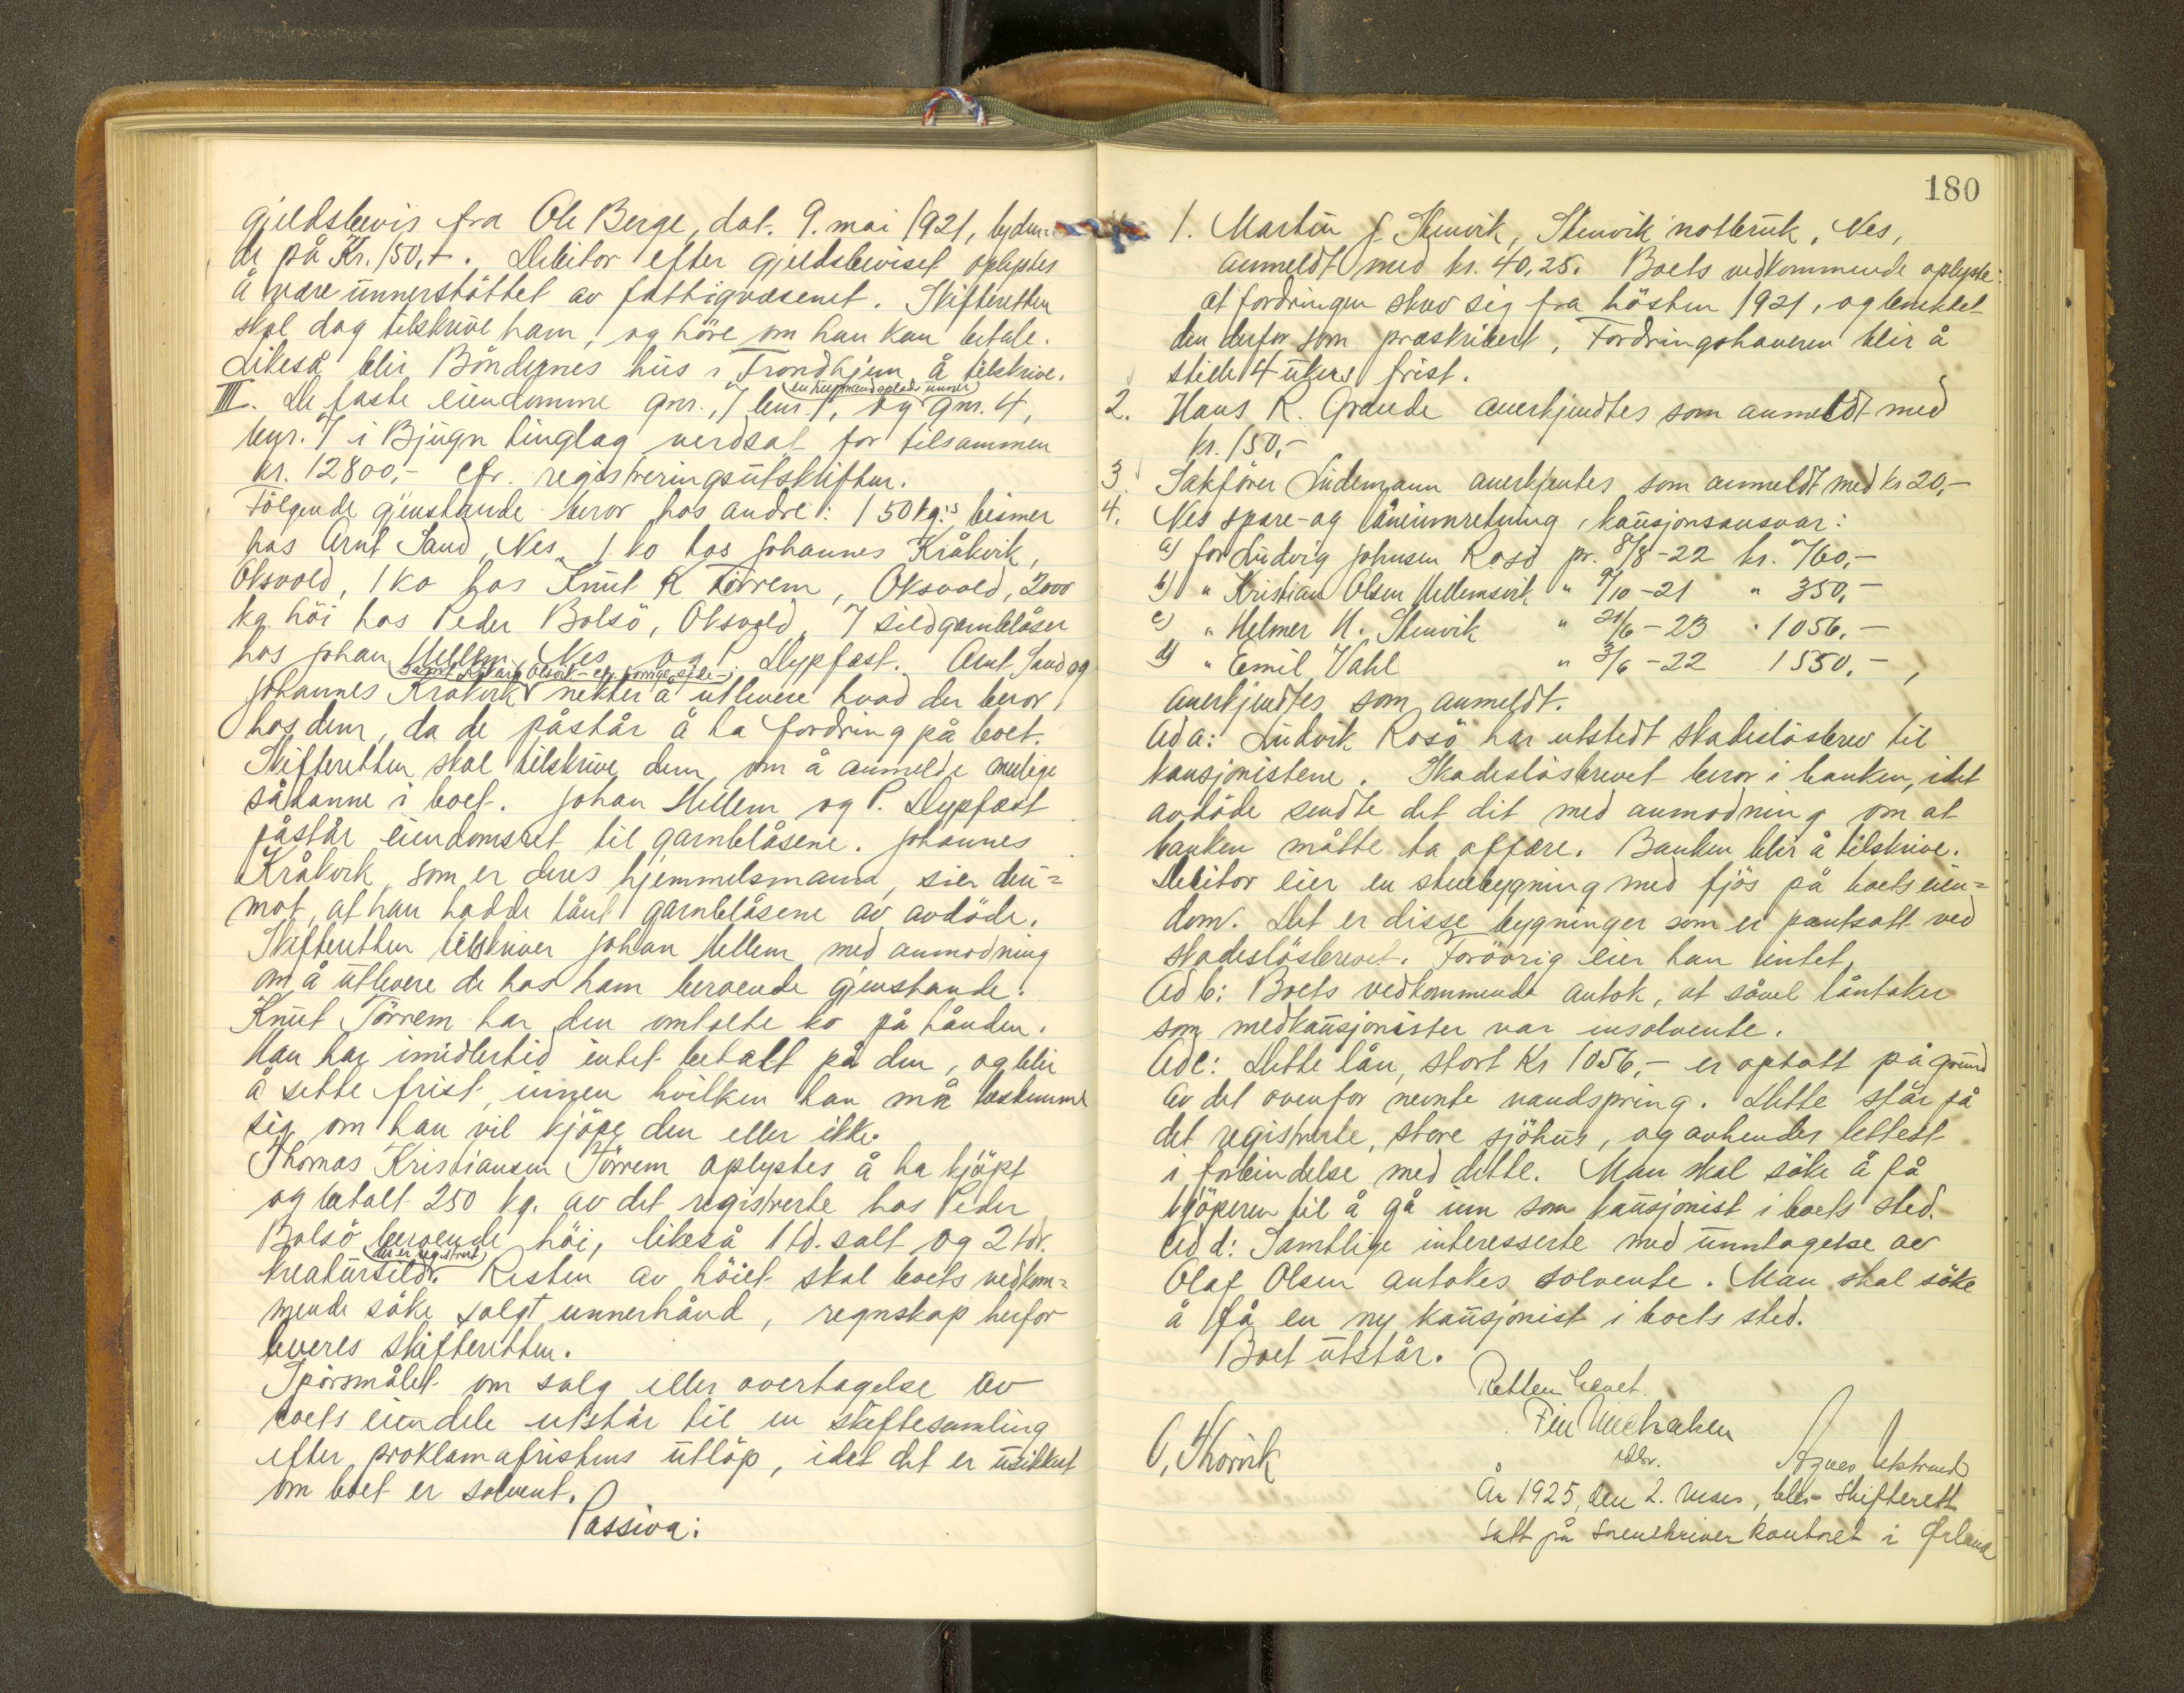 gjeldsbevis fra Ole Berge, dat. 9. mai 1921, lyden-
de på Kr. 150,-. Debitor efter gjeldsbeviset oplystes
å være unnerstöttet av fattigvæsenet. Skifteretten
skal dog tilskrive ham, og höre om han kan betale.
Likeså blir Böndernes hus i Trondhjem å tilskrive.
III. De faste eiendomme gnr. 7 bnr 1, og gnr. 4,
bnr. 7 i Bjugn tinglag verdsat for tilsammen
kr. 12800,- cfr. registreringsutskriften.
Fölgende gjenstande beror hos andre: 1 50 kg.s bismer
hos Arnt Sand, Nes, 1 ko hos Johannes Kråkvik,
Oksvold, 1 ko hos Knut K Törrem, Oksvold, 2000
kg. höi hos Peder Bolsö, Oksvold, 7 sildgarnblåser
hos Johan Mellem, Nes og P. Dypfest. Arnt Sand og
Johannes Kråkvik nekter å utlevere hvad der beror
hos dem, da de påstår å ha fordring på boet.
Skifteretten skal tilskrive dem om å anmelde mulige
sådanne i boet. Johan Mellem og P. Dypfest
påstår eiendomsret til garnblåsene. Johannes
Kråkvik, som er deres hjemmelsmann, sier der=
mot, at han hadde lånt garnblåsene av avdöde.
Skifteretten tilskriver Johan Mellem med anmodning
om å utlevere de hos ham beroende gjenstande.
Knut Törrem har den omtalte ko på hånden.
Han har imidlertid intet betalt på den, og blir
å sette frist, innen hvilken han må bestemme
sig om han vil kjöpe den eller ikke.
Thomas Kristiansen Törrem oplystes å ha kjöpt
og betalt 250 kg. av det registrerte hos Peder
Bolsö beroende höi, likeså 1 td. salt og 2 tdr.
(der er registrert)
kreatursild. Resten av höiet skal boets vedkom=
mende söke solgt unnerhånd, regnskap herfor
leveres skifteretten.
Spörsmålet om salg eller overtagelse av
boets eiendele utstår til en skiftesamling
efter proklamafristens utlöp, idet det er usikkert
om boet er solvent.
Passiva:
180
1. Martin J. Stenvik, Stenvik notbruk, Nes,
anmeldt med kr. 40,25. Boets vedkommende oplyste:
at fordringen skrev sig fra hösten 1921, og benektet
den derfor som præskribert, Fordringshaveren blir å
stille 4 ukers frist.
2. Hans R. Grande anerkjendtes som anmeldt med
kr. 150,-
3. Sakförer Lindemann anerkjentes som anmeldt med kr 20,-
4. Nes spare- og låneinnretning, kausjonsansvar:
a) for Ludvig Johnsen Rosö pr. 8/8-22 kr. 760,-
b) " Kristian Olsen Mellemsvik " 9/10-21 " 350,-
c) " Helmer H. Stenvik " 21/6-23 " 1056.-
d) " Emil Vahl " 3/6-22 1550.-,
anerkjendtes som anmeldt.
Ad a: Ludvik Rosö har utstedt skadeslösbrev til
kausjonistene. Skadeslösbrevet beror i banken, idet
avdöde sendte det dit med anmodning om at
banken måtte ta affære. Banken blir å tilskrive.
Debitor eier en stuebygning med fjös på boets eien=
dom. Det er disse bygninger som er pantsatt ved
skadeslösbrevet. Forövrig eier han intet.
Ad b: Boets vedkommende antok, at såvel låntaker
som medkausjonister var insolvente.
Ad c: Dette lån, stort Kr 1056,- er optatt på grund
av det ovenfor nevnte vandspring. Dette står på
det registrerte, store sjöhus, og avhendes lettest
i forbindelse med dette. Man skal söke å få
kjöperen til å gå inn som kausjonist i boets sted.
Ad d: Samtlige interesserte med unntagelse av
Olaf Olsen antokes solvente. Man skal söke
å få en ny kausjonist i boets sted.
Boet utstår.
Retten hevet
O. Thorvik
Agnes
År 1925, den 2. mars, blev skifterett
satt på sorenskriverkontoret i Ørland